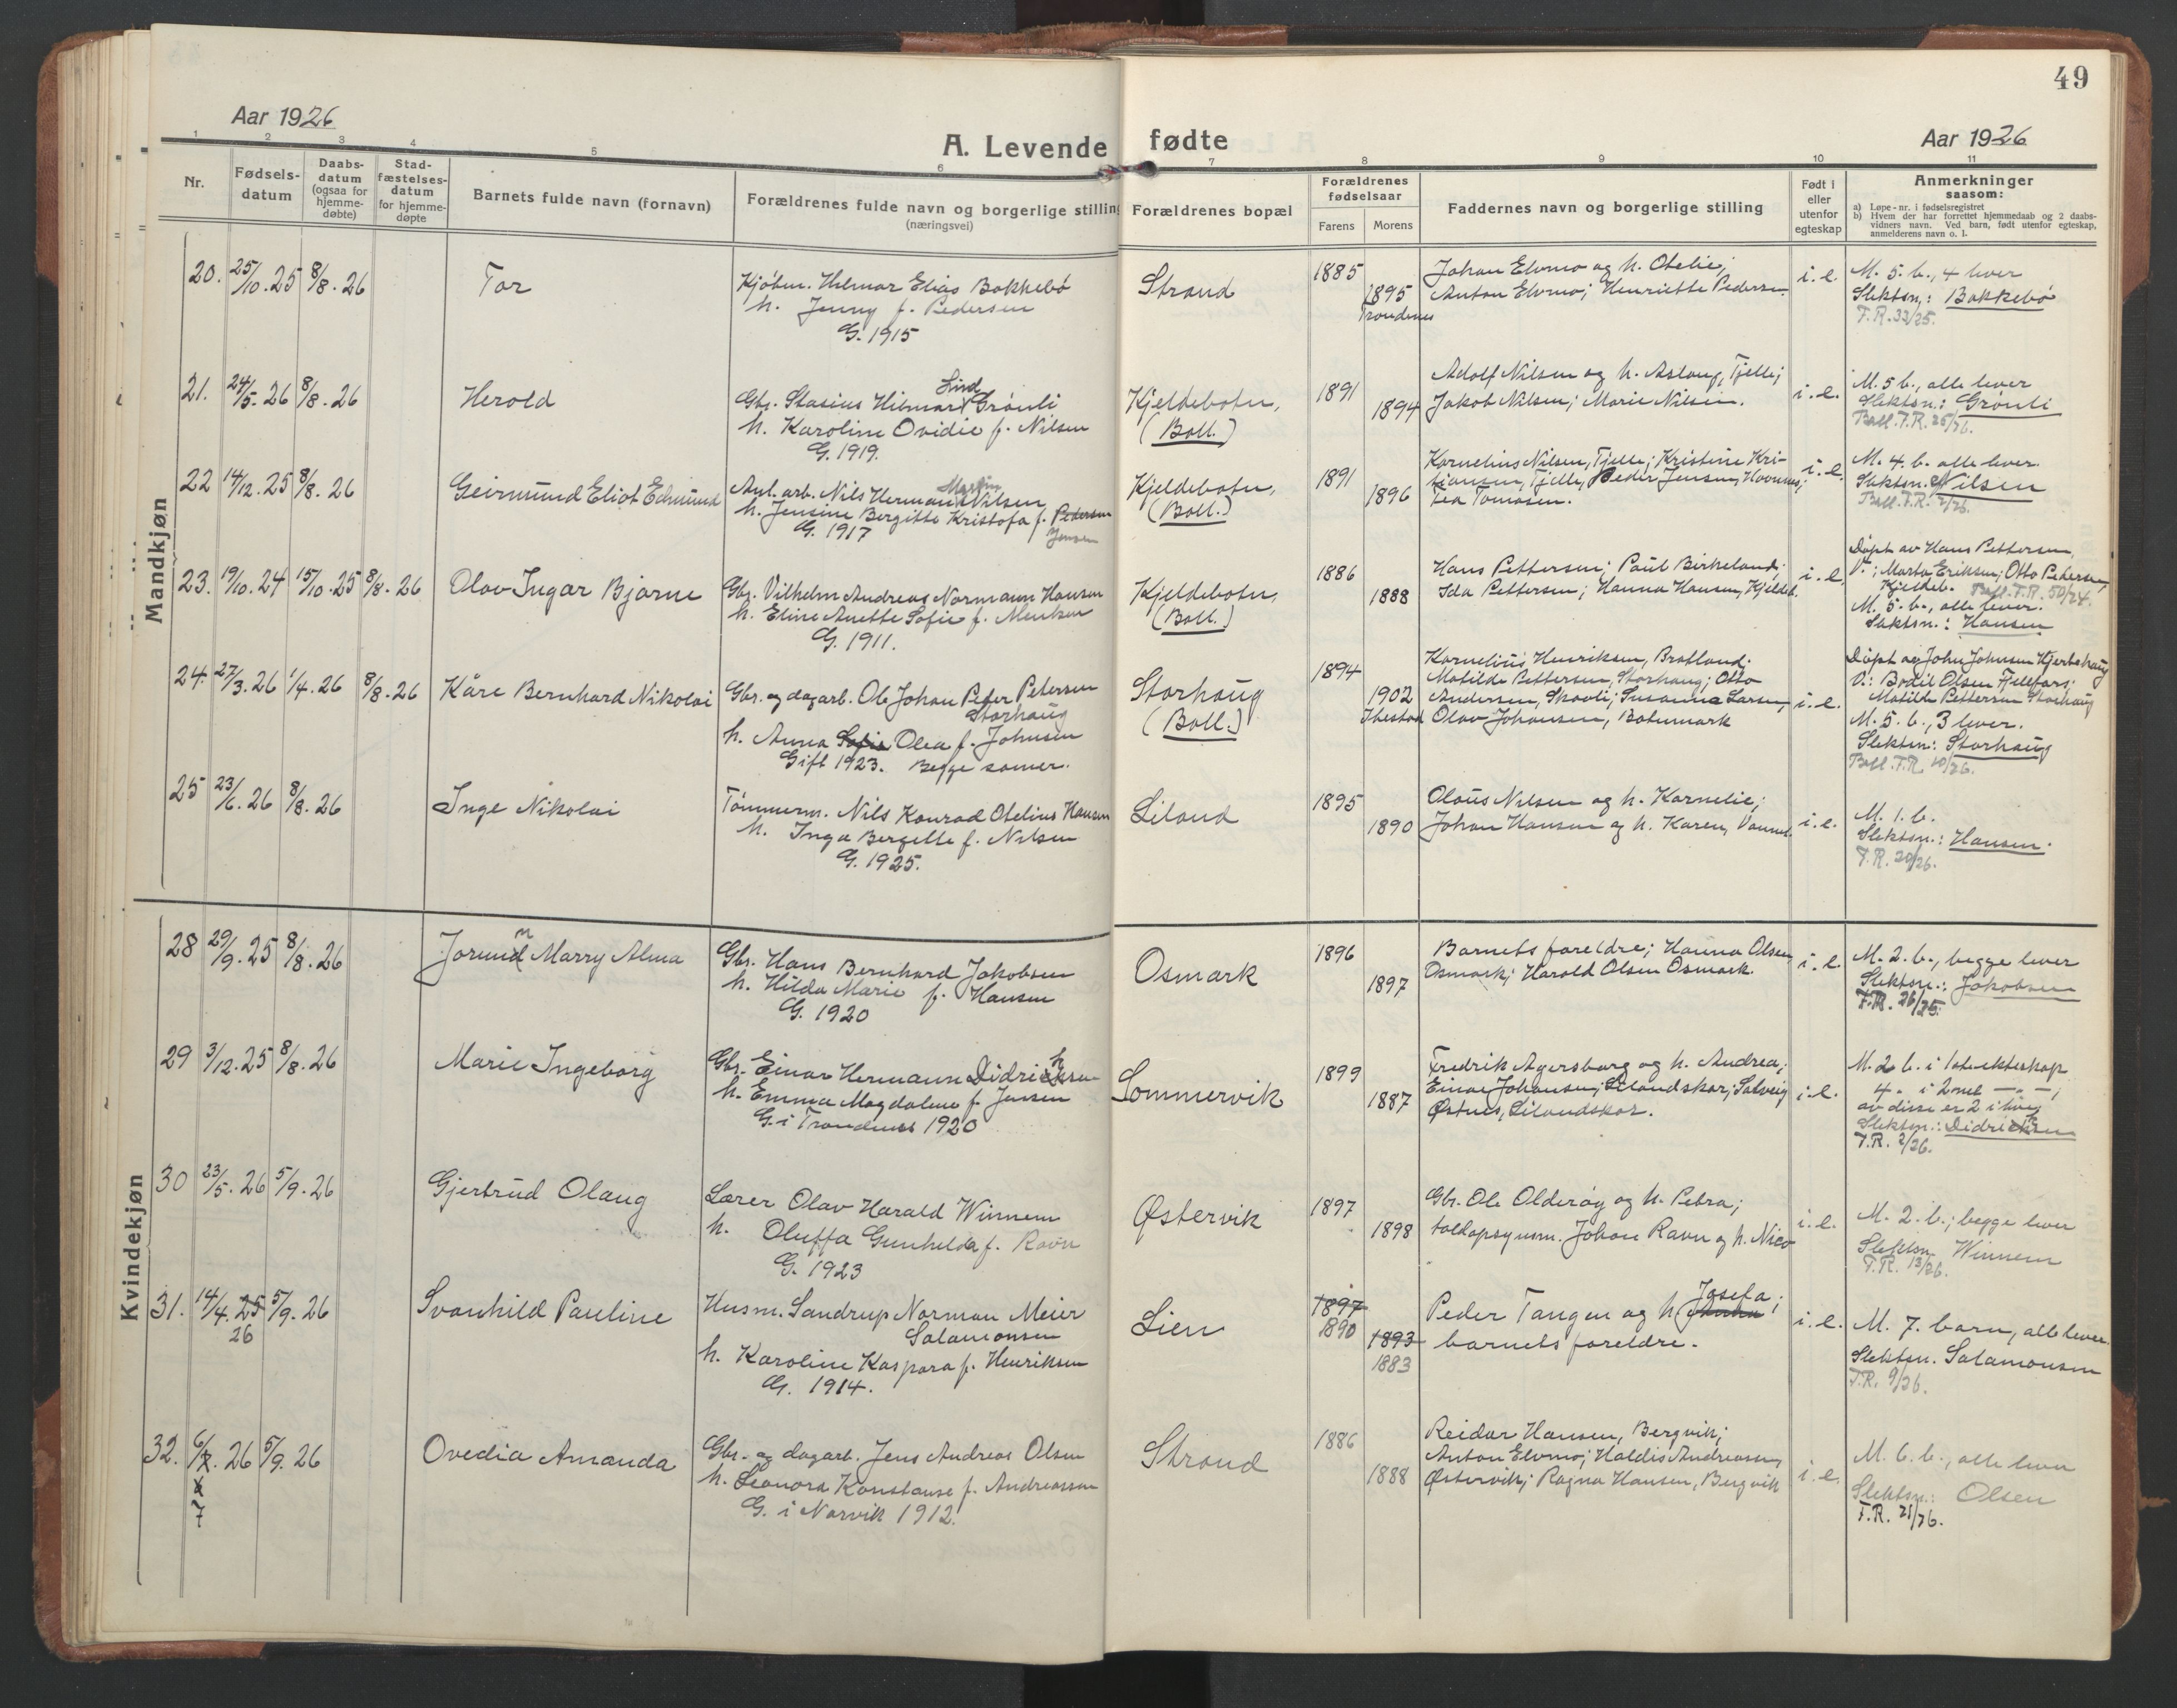 49
Aar 1926
A. Levende fødte
Aar 1926
1 2 3 4 5 6 7 8 9 10 11
Nr.
Fødsels-
datum
Daabs-
datum
(ogsaa for
hjemme-
døbte)
Stad-
fæstelses-
datum
for hjemme-
døpte
Barnets fulde navn (fornavn)
Forældrenes fulde navn og borgerlige stilling
(næringsvei)
Forældrenes bopæl
Forældrenes
fødselsaar
Farens Morens
Faddernes navn og borgerlige stilling
Født i
eller
utenfor
egteskap
Anmerkninger
saasom:
a) Løpe-nr. i fødselsregistret
b) Hvem der har forrettet hjemmedaab og 2 daabs-
vidners navn. Ved barn, født utenfor egteskap,
anmelderens navn o. l.
Mandkjøn
20. 25/10.25 8/8.26
Tor
Kjøbm. Hilmar Elias Bakkebø
h. Jenny f. Pedersen
G. 1915
Strand
1885
1895
Trondenes
Johan Elvmo og h. Otelie;
Anton Elvmo; Henriette Pedersen
i. e.
M. 5. b., 4 lever
Slektsn.: Bakkebø
F.R. 33/25.
21. 24/5.26 8/8.26
Herold
Lind
Gbr. Stasius Hilmar Grønli
h. Karoline Ovidie f. Nilsen
G. 1919.
Kjeldebotn,
(Ball.)
1891
1894
Adolf Nilsen og h. Aslaug, Tjelle;
Jakob Nilsen; Marie Nilsen.
i. e.
M. 5 b., alle lever
Slektsn.: Grønli
Ball. F.R. 25/26.
22 14/12.25 8/8.26
Geirmund Eliot Edmund
Martin
Anl. arb. Nils Herman Nilsen
h. Jensine Bergitte Kristofa f. Pedersen
Jensen
G. 1917
Kjeldebotn,
(Ball.)
1891
1896
Kornelius Nilsen, Tjelle; Kristine Kri-
tiansen, Tjelle, Peder Jensen, Havnnes;
Lea Tomasen.
i. e.
M. 4. b. alle lever.
Slektsn. Nilsen
Ball. F.R. 2/26.
23. 19/10.24 15/10.25 8/8.26
Olav Ingar Bjarne
Gbr. Vilhelm Andreas Normann Hansen
h. Eline Anette Sofie f. Mentsen
G. 1911.
Kjeldebotn,
(Ball.)
1886
1888
Hans Pettersen; Paul Birkeland;
Ida Pettersen; Hanna Hansen, Kjeldeb.
i. e.
Døpt av Hans Pettersen,
V.; Marta Eriksen; Otto Pedersen,
Kjeldeb. Ball. F.R. 50/24.
M. 5. b., alle lever.
Slektsn.: Hansen
24. 27/3.26 1/4.26 8/8.26
Kåre Bernhard Nikolai
Gbr. og dagarb. Ole Johan Peter Petersen
Storhaug
h. Anna Sofie Olea f. Johnsen
Gift 1923. Begge samer.
Storhaug
(Ball.)
1894
1902
Ibestad
Kornelius Henriksen, Bratland.
Matilde Pettersen, Storhaug; Otto
Andersen, Skavli; Susanna Larsen,
Olav Johansen, Botnmark
i. e.
Døpt av John Johnsen Hjertehaug
V.: Bodil Olsen Fjellfors;
Matilde Pettersen Storhaug
M. 5. b., 3 lever.
Slektsn: Storhaug
Ball. F.R. 10/26.
25 23/6.26 8/8.26
Inge Nikolai
Tømmerm. Nils Konrad Otelius Hansen
h. Inga Bergitte f. Nilsen
G. 1925.
Liland
1895
1890
Olaus Nilsen og h. Kornelie;
Johan Hansen og h. Karen,
i. e.
M. 1. b.
Slektsn.: Hansen.
F.R. 20/26.
Kvindekjøn
28 29/9.25 8/8.26
Jorunn Marry Alma
Gbr. Hans Bernhard Jakobsen
h. Hilda Marie f. Hansen
G. 1920
Osmark
1896
1897
Barnets foreldre; Hanna Olsen
Osmark; Harold Olsen Osmark.
i. e.
M. 2. b., begge lever
Slektsn.: Jakobsen
F.R. 26/25.
29 3/12.25 8/8.26
Marie Ingeborg
Gbr. Einar Hermann Didriksen
h. Emma Magdalene f. Jensen
G. i Trondenes 1920
Sommervik
1899
1887
Fredrik Agersborg og h. Andrea;
Einar Johansen, Lilandskar; Solveig
Østnes, Lilandskar.
i. e.
M. 2 b. i 1ste ekteskap
4 " i 2net — " —;
av disse er 2 i live
Slektsn.: Didriksen
F.R. 2/26.
30 23/5.26 5/9.26
Gjertrud Olaug
Lærer Olav Harald Winnem
h. Oluffa Gunhilda f. Ravn
G. 1923
Østervik
1897
1898
Gbr. Ole Olderøy og h. Petra;
toldopsynsm. Johan Ravn og h. Nico
i. e.
M. 2. b.; begge lever
Slektsn. Winnem
F.R. 13/26.
31. 14/4.25 5/9.26
26
Svanhild Pauline
Husm. Sandrup Norman Meier
Salamonsen
h. Karoline Kaspara f. Henriksen
G. 1914.
Lien
1897
1890
1893
1883
Josefa;
Peder Tangen og h.
barnets foreldre.
i. e.
M. 7. barn, alle lever.
Slektsn. Salamonsen
F.R. 9/26.
32. 6/7.26 5/9.26
7
Ovedia Amanda
Gbr. og dagarb. Jens Andreas Olsen
h. Leonora Konstanse f. Andreassen
G. i Narvik 1912.
Strand
1886
1888
Reidar Hansen, Bergvik;
Anton Elvmo; Haldis Andreassen,
Østervik; Ragna Hansen, Bergvik
i. e.
M. 6. b., alle lever
Slektsn.: Olsen
F.R. 21/26.